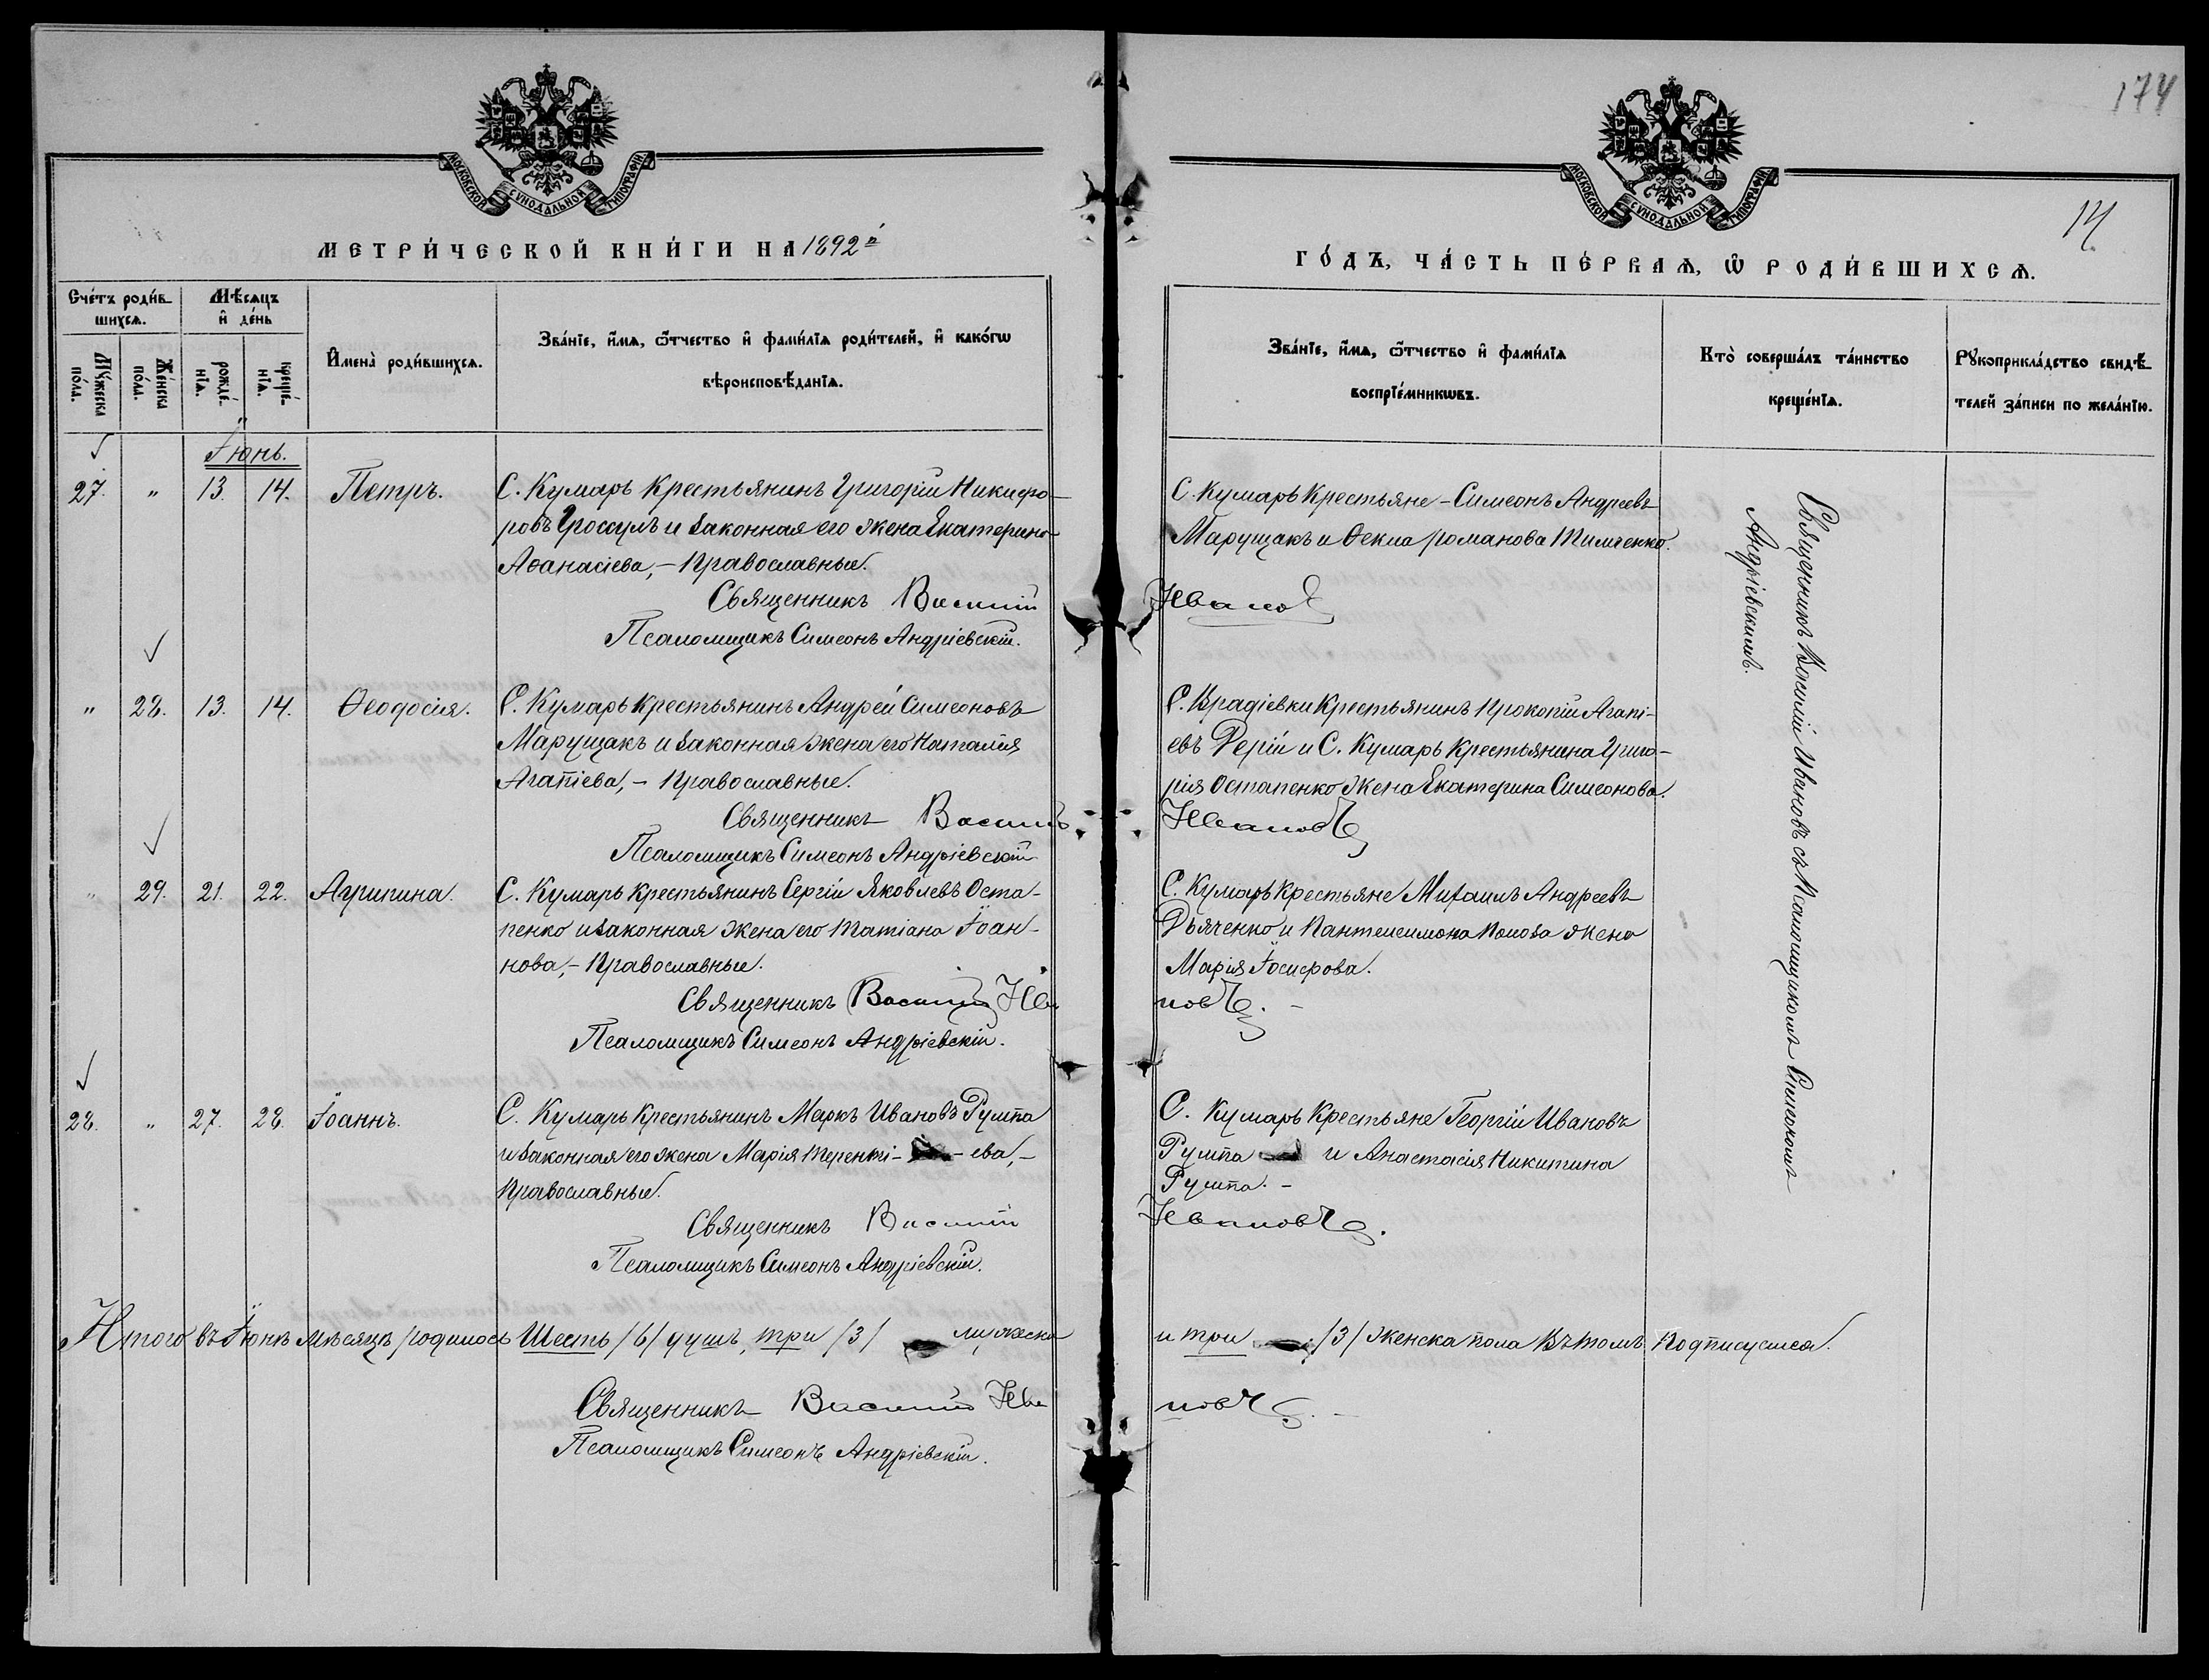 174
14.
МОСКОВСКОЙ СѴНОДАЛЬНОЙ ТИПОГРАФІИ
МОСКОВСКОЙ СѴНОДАЛЬНОЙ ТИПОГРАФІИ
МЕТРИ́ЧЕСКОЙ КНИ́ГИ НА 1892й
ГО́ДЪ, ЧА́СТЬ ПЕ́РВАѦ, Ѡ РОДИ́ВШИХСѦ.
Сче́тъ роди́в-
шихсѧ.
Мѣ́сѧцъ
и҆ де́нь
Мꙋ́жеска
по́ла.
Же́нска
по́ла.
рожде́-
нїѧ.
креще́-
нїѧ.
И҆мена̀ роди́вшихсѧ.
Зва́нїе, и҆́мѧ, ѻ҆́тчество и҆ фами́лїѧ роди́телей, и҆ како́гѡ
вѣроисповѣ́данїѧ.
Зва́нїе, и҆́мѧ, ѻ҆́тчество и҆ фами́лїѧ
воспрїе́мникѡвъ.
Кто̀ соверша́лъ та́инство
креще́нїѧ.
Рꙋкоприкла́дство свидѣ́-
телей за́писи по жела́нїю.
Іюнь.
27. " 13. 14. Петръ.
С. Кумарь Крестьянинъ Григорій Никифо-
ровъ Гроссулъ и законная его жена Екатерина
Аѳанасіева, – Православные.
Священникъ Василій
Псаломщикъ Симеонъ Андріевскій.
С. Кумарь Крестьяне – Симеонъ Андреевъ
Марущакъ и Ѳекла Романова Тимченко.
Ивановъ
" 28. 13. 14. Ѳеодосія.
С. Кумарь Крестьянинъ Андрей Симеоновъ
Марущакъ и законная жена его Наталія
Агапіева, – Православные.
Священникъ Василій
Псаломщикъ Симеонъ Андріевскій.
С. Врадіевки Крестьянинъ Прокопій Агапі-
евъ Дерій и С. Кумарь Крестьянина Григо-
рія Остапенко жена Екатерина Симеонова.
Ивановъ
" 29. 21. 22. Агрипина.
С. Кумарь Крестьянинъ Сергій Яковлевъ Оста-
пенко и законная жена его Татіана Іоан-
нова, – Православные.
Священникъ Василій Ива
Псаломщикъ Симеонъ Андріевскій.
С. Кумарь Крестьяне Михаилъ Андреевъ
Дьяченко и Пантелеимона Попова жена
Марія Іосифова.
новъ. –
28. " 27. 28. Іоаннъ.
С. Кумарь Крестьянинъ Маркъ Ивановъ Румпа
и законная его жена Марія Теренті- – ева, –
Православные.
Священникъ Василій
Псаломщикъ Симеонъ Андріевскій.
С. Кумарь Крестьяне Георгій Ивановъ
Румпа и Анастасія Никитина
Румпа. –
Ивановъ.
Священникъ Василій Ивановъ съ Псаломщикомъ Симеономъ
Андріевскимъ.
Итого въ Іюнѣ мѣсяцѣ родилось Шесть /6/ душъ, три /3/ мужеска
и три /3/ женска пола Въ томъ Подписуемся.
Священникъ Василій Ива
новъ. –
Псаломщикъ Симеонъ Андріевскій.